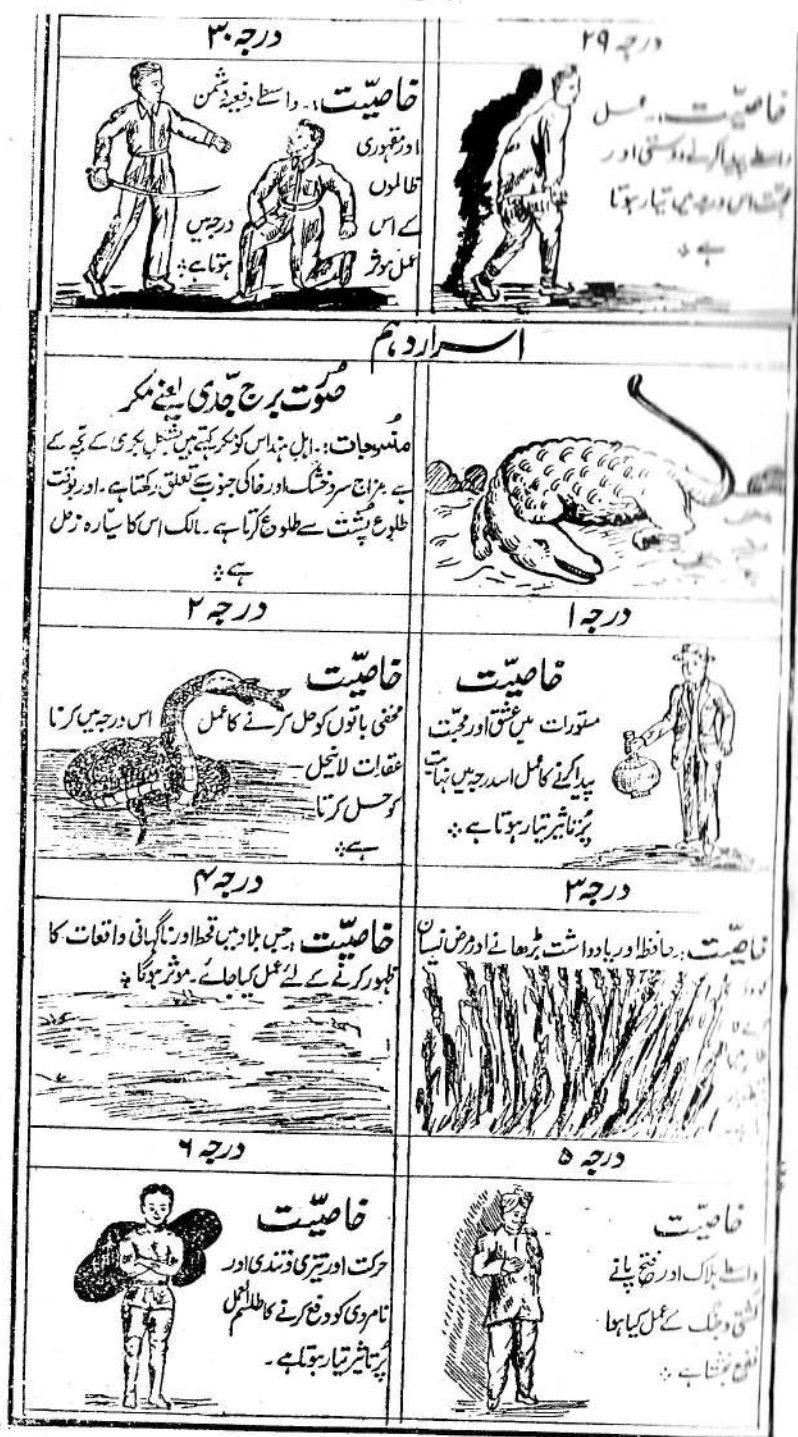 درجہ ۲۹
خاصیّت :۔ عمل
واسطے پیدا کرنے دوستی اور
محبّت اس درجہ میں تیار ہوتا
ہے
درجہ ۳۰
خاصیّت :۔ واسطے دفعیہ دشمن
اور مقہوری
ظالموں
کے اس
درجہ میں
عمل مؤثر
ہوتا ہے
اسرار دہم
صُوت برج جَدّی یعنے مکر
منسوبات :۔ اہلِ ہند اس کو مکر کہتے ہیں بشکل بکری کے بچّہ کے
ہے مزاج سرد خشک اور خاکی جنوب سے تعلق رکھتا ہے۔ اور بوقت
طلوع پُشت سے طلوع کرتا ہے۔ مالک اس کا سیّارہ زحل
ہے
درجہ ۱
خاصیّت
مستورات میں عشق اور محبّت
پیدا کرنے کا عمل اسدرجہ میں نہایت
پُر تاثیر تیار ہوتا ہے
درجہ ۲
خاصیّت
مخفی باتوں کو حل کرنے کا عمل اس درجہ میں کرنا
عقدات لانیحل
کو حل کرتا
ہے
درجہ ۳
خاصیّت :۔ حافظہ اور یادداشت بڑھانے اور مرض نسیان
درجہ ۴
خاصیّت :۔ جس بلاد میں قحط اور ناگہانی واقعات کا
ظہور کرنے کے لئے عمل کیا جائے۔ موثر ہوگا
درجہ ۵
خاصیّت
واسطے ہلاک اور فتح پانے
کشتی و جنگ کے عمل کیا ہوا
نفع بخشتا ہے
درجہ ۶
خاصیّت
حرکت اور تیزی و تندی اور
نامردی کو دفع کرنے کا طلسم العمل
پُر تاثیر تیار ہوتا ہے۔